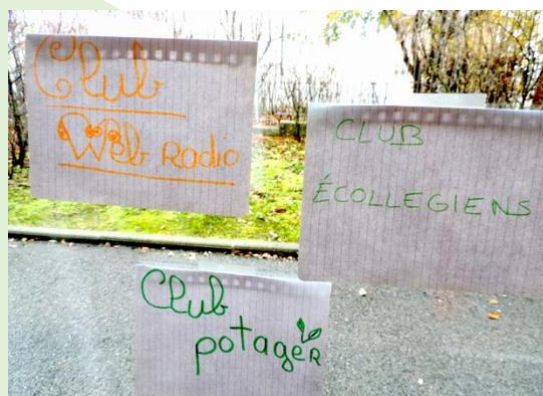 Club
Web Radio
CLUB
ÉCOLLEGIENS
Club
potager